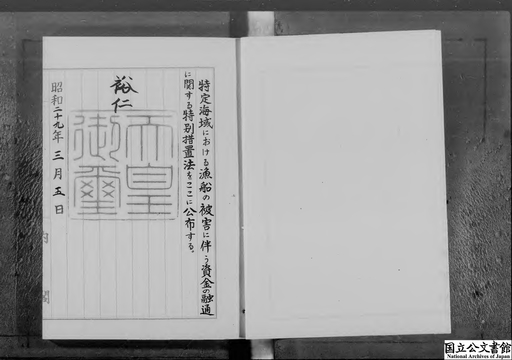 特定海域における漁船の被害に伴う資金の融通
に関する特別措置法をここに公布する。
裕仁
天皇
御璽
昭和二十九年三月五日
内閣
国立公文書館
National Archives of Japan